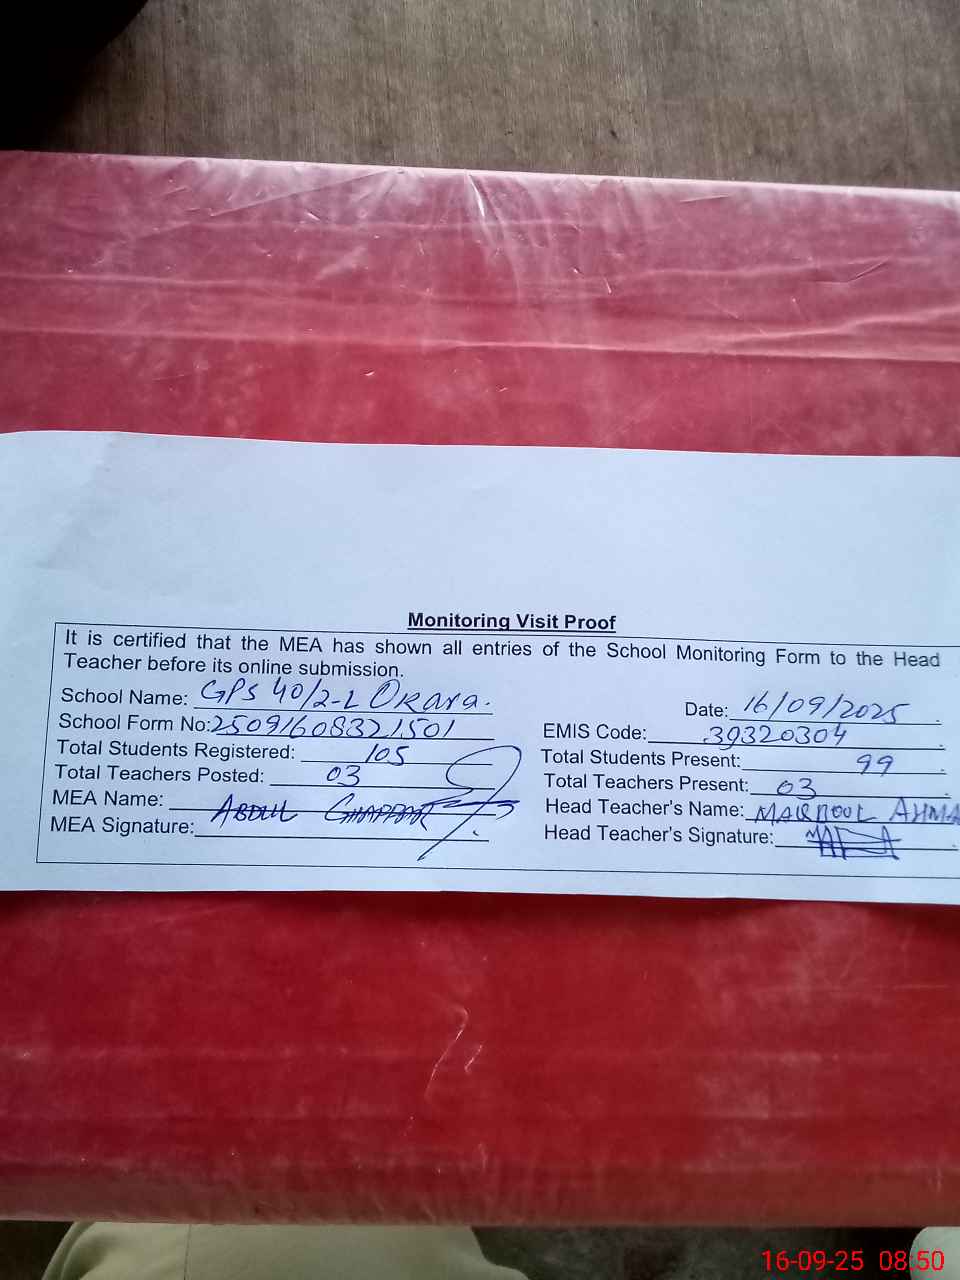 Monitoring Visit Proof
It is certified that the MEA has shown all entries of the School Monitoring Form to the Head
Teacher before its online submission.
School Name: GPS 40/2-L Okara.
Date: 16/09/2025
School Form No: 25091608321501
EMIS Code: 39320304
Total Students Registered: 105
Total Students Present: 99
Total Teachers Posted: 03
Total Teachers Present: 03
MEA Name: ABDUL GHAFFAR
Head Teacher's Name: MAQBOOL AHMA
MEA Signature:
Head Teacher's Signature:
16-09-25 08:50